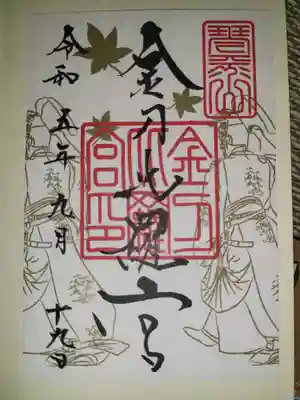 金刀比羅宮
金刀比羅宮印
令和五年九月十九日